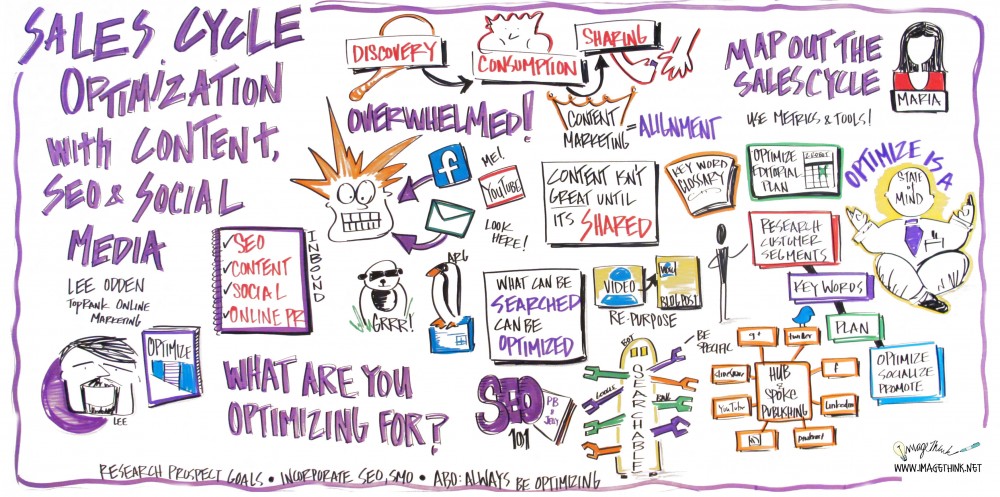 SALES CYCLE
OPTIMIZATION
WITH CONTENT,
SEO & SOCIAL
MEDIA
LEE ODDEN
TOPRANK ONLINE
MARKETING
OPTIMIZE
LEE
✓SEO
✓CONTENT
✓SOCIAL
✓ONLINE PR
INBOUND
DISCOVERY
CONSUMPTION
SHARING
OVERWHELMED!
f
ME!
YOUTUBE
LOOK
HERE!
CONTENT
MARKETING = ALIGNMENT
CONTENT ISN'T
GREAT UNTIL
IT'S SHARED
KEY WORD
GLOSSARY
GRRR!
ARG
WHAT CAN BE
SEARCHED
CAN BE
OPTIMIZED
VIDEO
BLOG POST
RE-PURPOSE
WHAT ARE YOU
OPTIMIZING FOR?
SEO
101
PB
&
JELLY
SEARCHABLE
GOOGLE
BE
SPECIFIC
MAP OUT THE
SALES CYCLE
USE METRICS & TOOLS!
MARIA
OPTIMIZE
EDITORIAL
PLAN
OPTIMIZE IS A
STATE
of
MIND
RESEARCH
CUSTOMER
SEGMENTS
KEY WORDS
PLAN
OPTIMIZE
SOCIALIZE
PROMOTE
HUB
&
SPOKE
PUBLISHING
g+
twitter
f
LinkedIn
YOUTUBE
RESEARCH PROSPECT GOALS • INCORPORATE SEO, SMO • ABO: ALWAYS BE OPTIMIZING
ImageThink
WWW.IMAGETHINK.NET